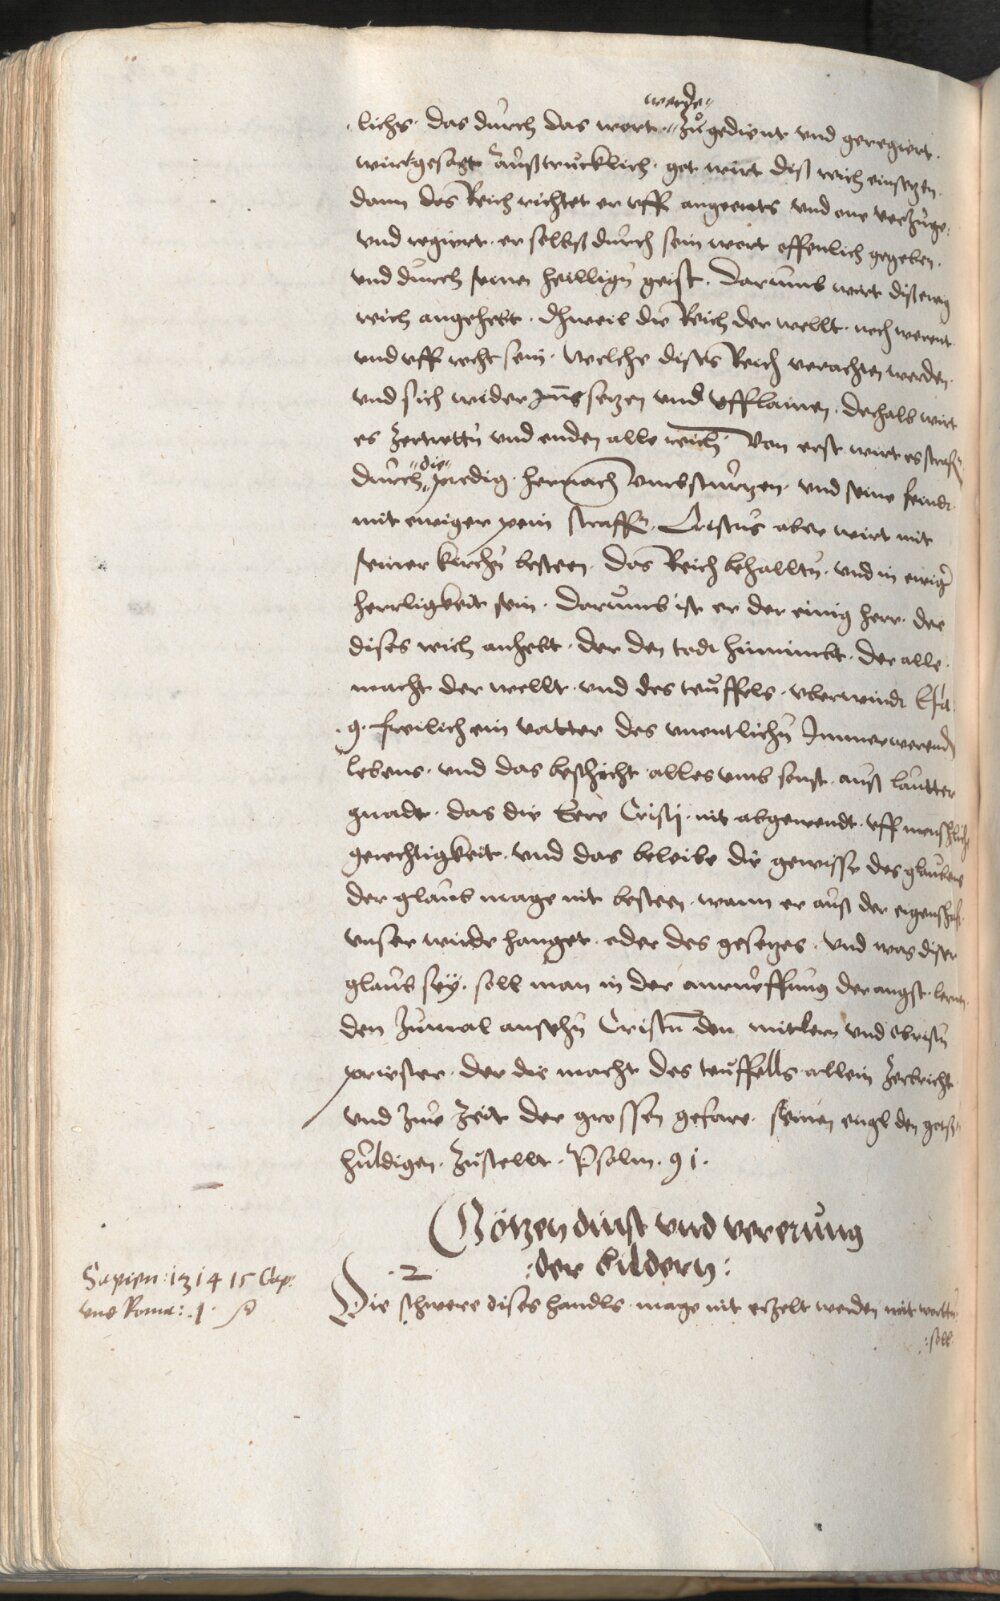 werde
lichs. das durch das wort. zugedient vnd geregiert.
würt gesagt außtrucklich. got wirt diß reich einsetzen.
dann das Reich richtet er vff angeents vnd one verzuge.
vnd regiert. er selbst durch sein wort offenlich gegeben.
vnd durch seinen heilligen geist. Darumb wirt diß ewig
reich angehebt. Dhweil die Reich der wellt. noch werent
vnd vff recht sein. Welche dises Reich verachten werden.
vnd sich wider setzen vnd vfflainen. Dechalb wirt
es zertretten vnd enden alle reich. Von erst wirt es straffen
die
durch predig. hernach vmbsturtzen. vnd seine feindt
mit ewiger pein straffen. Cristus aber wirt mit
seiner kirchen besteen. Das Reich behalltn. vnd in ewiger
herrligkeit sein. Darumb ist er der einig herr. der
dises reich anhebt. der den todt hinnimbt. der alle
macht der wellt. vnd des teuffels. vberwindt Esa.
9. freilich ein vatter des vnentlichn Immerwerenden
lebens. vnd das beschicht alles vmb sonst. auß lautter
gnadt. das die Eere Cristi. nit abgewendt. vff menschliche
gerechtigkeit. vnd das beleibe die gewisse des glaubens
der glaub mage nit besteen. wann er auß der eigenschaft
vnser wirde hanget. oder des gesetzes. Vnd was diser
glaub sey. soll man in der anrueffung der angst. lernen
den zumal ansehn Cristum den mitlern vnd obristn
priester. der die macht des teuffells. allein zerbricht
vnd zur zeit der grossen gefare. seinen engl den
huldigen. zustellt. Psalm. 91.
Götzendinst vnd vererung
:der bildern:
Sapien: 13 14 15 Cap:
vnd Roma: .1.
.2.
Die schwere dises handls. mage nit erzelt werden mit wortten
:soll